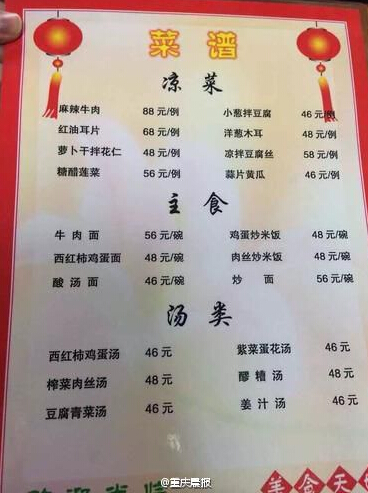 菜谱
凉菜
麻辣牛肉 88 元/例 小葱拌豆腐 46 元/例
红油耳片 68 元/例 洋葱木耳 48 元/例
萝卜干拌花仁 48 元/例 凉拌豆腐丝 58 元/例
糖醋莲菜 56 元/例 蒜片黄瓜 46 元/例
主食
牛肉面 56 元/碗 鸡蛋炒米饭 48 元/碗
西红柿鸡蛋面 48 元/碗 肉丝炒米饭 48 元/碗
酸汤面 46 元/碗 炒面 56 元/碗
汤类
西红柿鸡蛋汤 46 元 紫菜蛋花汤 46 元
榨菜肉丝汤 48 元 醪糟汤 48 元
豆腐青菜汤 46 元 姜汁汤 46 元
@重庆晨报
美食天